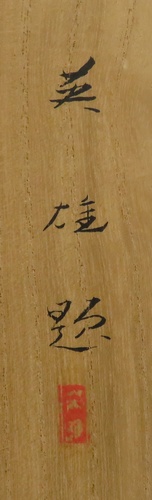 英雄題